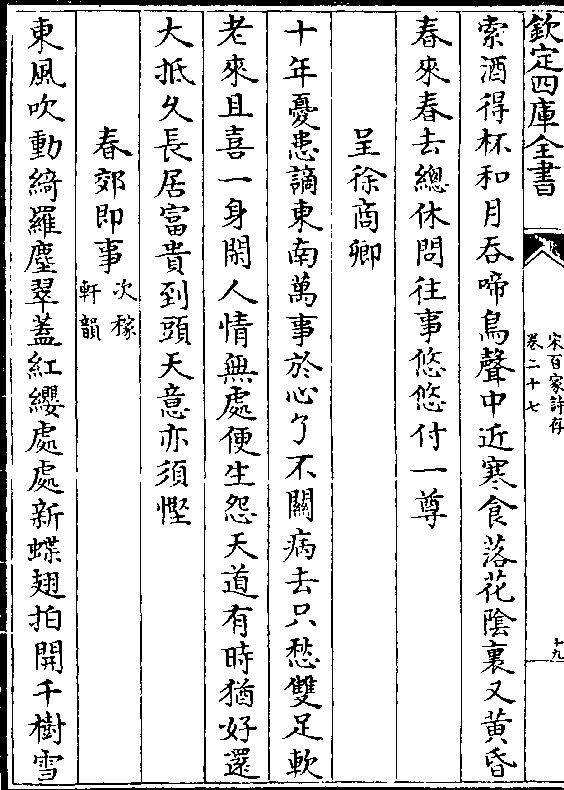 欽定四庫全書
宋百家詩存
卷二十七
十九
索酒得杯和月吞啼鳥聲中近寒食落花陰裏又黃昏
春來春去總休問往事悠悠付一尊
呈徐商卿
十年憂患謫東南萬事於心了不關病去只愁雙足軟
老來且喜一身閑人情無處便生怨天道有時猶好還
大抵久長居富貴到頭天意亦須慳
春郊即事
次稼
軒韻
東風吹動綺羅塵翠蓋紅纓處處新蝶翅拍開千樹雪